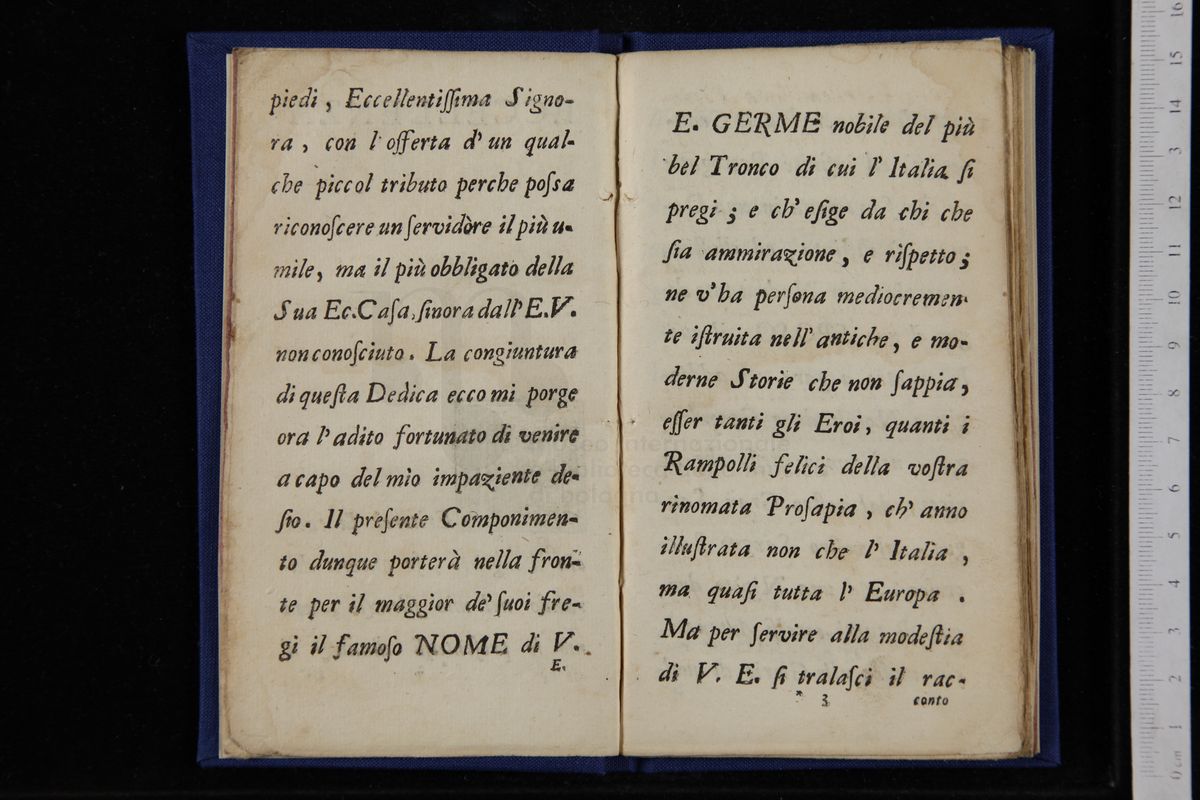 piedi, Eccellentiſſima Signo-
ra, con l'offerta d'un qual-
che piccol tributo perche poſsa
riconoſcere un ſervidòre il più u-
mile, ma il più obbligato della
Sua Ec.Caſa, ſinora dall'E.V.
non conoſciuto. La congiuntura
di queſta Dedica ecco mi porge
ora l'adito fortunato di venire
a capo del mìo impaziente de-
ſio. Il preſente Componimen-
to dunque porterà nella fron-
te per il maggior de' ſuoi fre-
gi il famoſo NOME di V.
E.
E. GERME nobile del più
bel Tronco di cui l'Italia ſi
pregi; e ch'eſige da chi che
ſia ammirazione, e riſpetto;
ne v'ha perſona mediocremen-
te iſtruita nell'antiche, e mo-
derne Storie che non ſappia,
eſſer tanti gli Eroi, quanti i
Rampolli felici della voſtra
rinomata Proſapia, ch'anno
illuſtrata non che l'Italia,
ma quaſi tutta l'Europa.
Ma per ſervire alla modeſtia
di V. E. ſi tralaſci il rac-
* 3 conto
museo internazionale
biblioteca
di bologna
16
15
14
3
12
11
10
9
8
7
6
5
4
3
2
1
0 cm